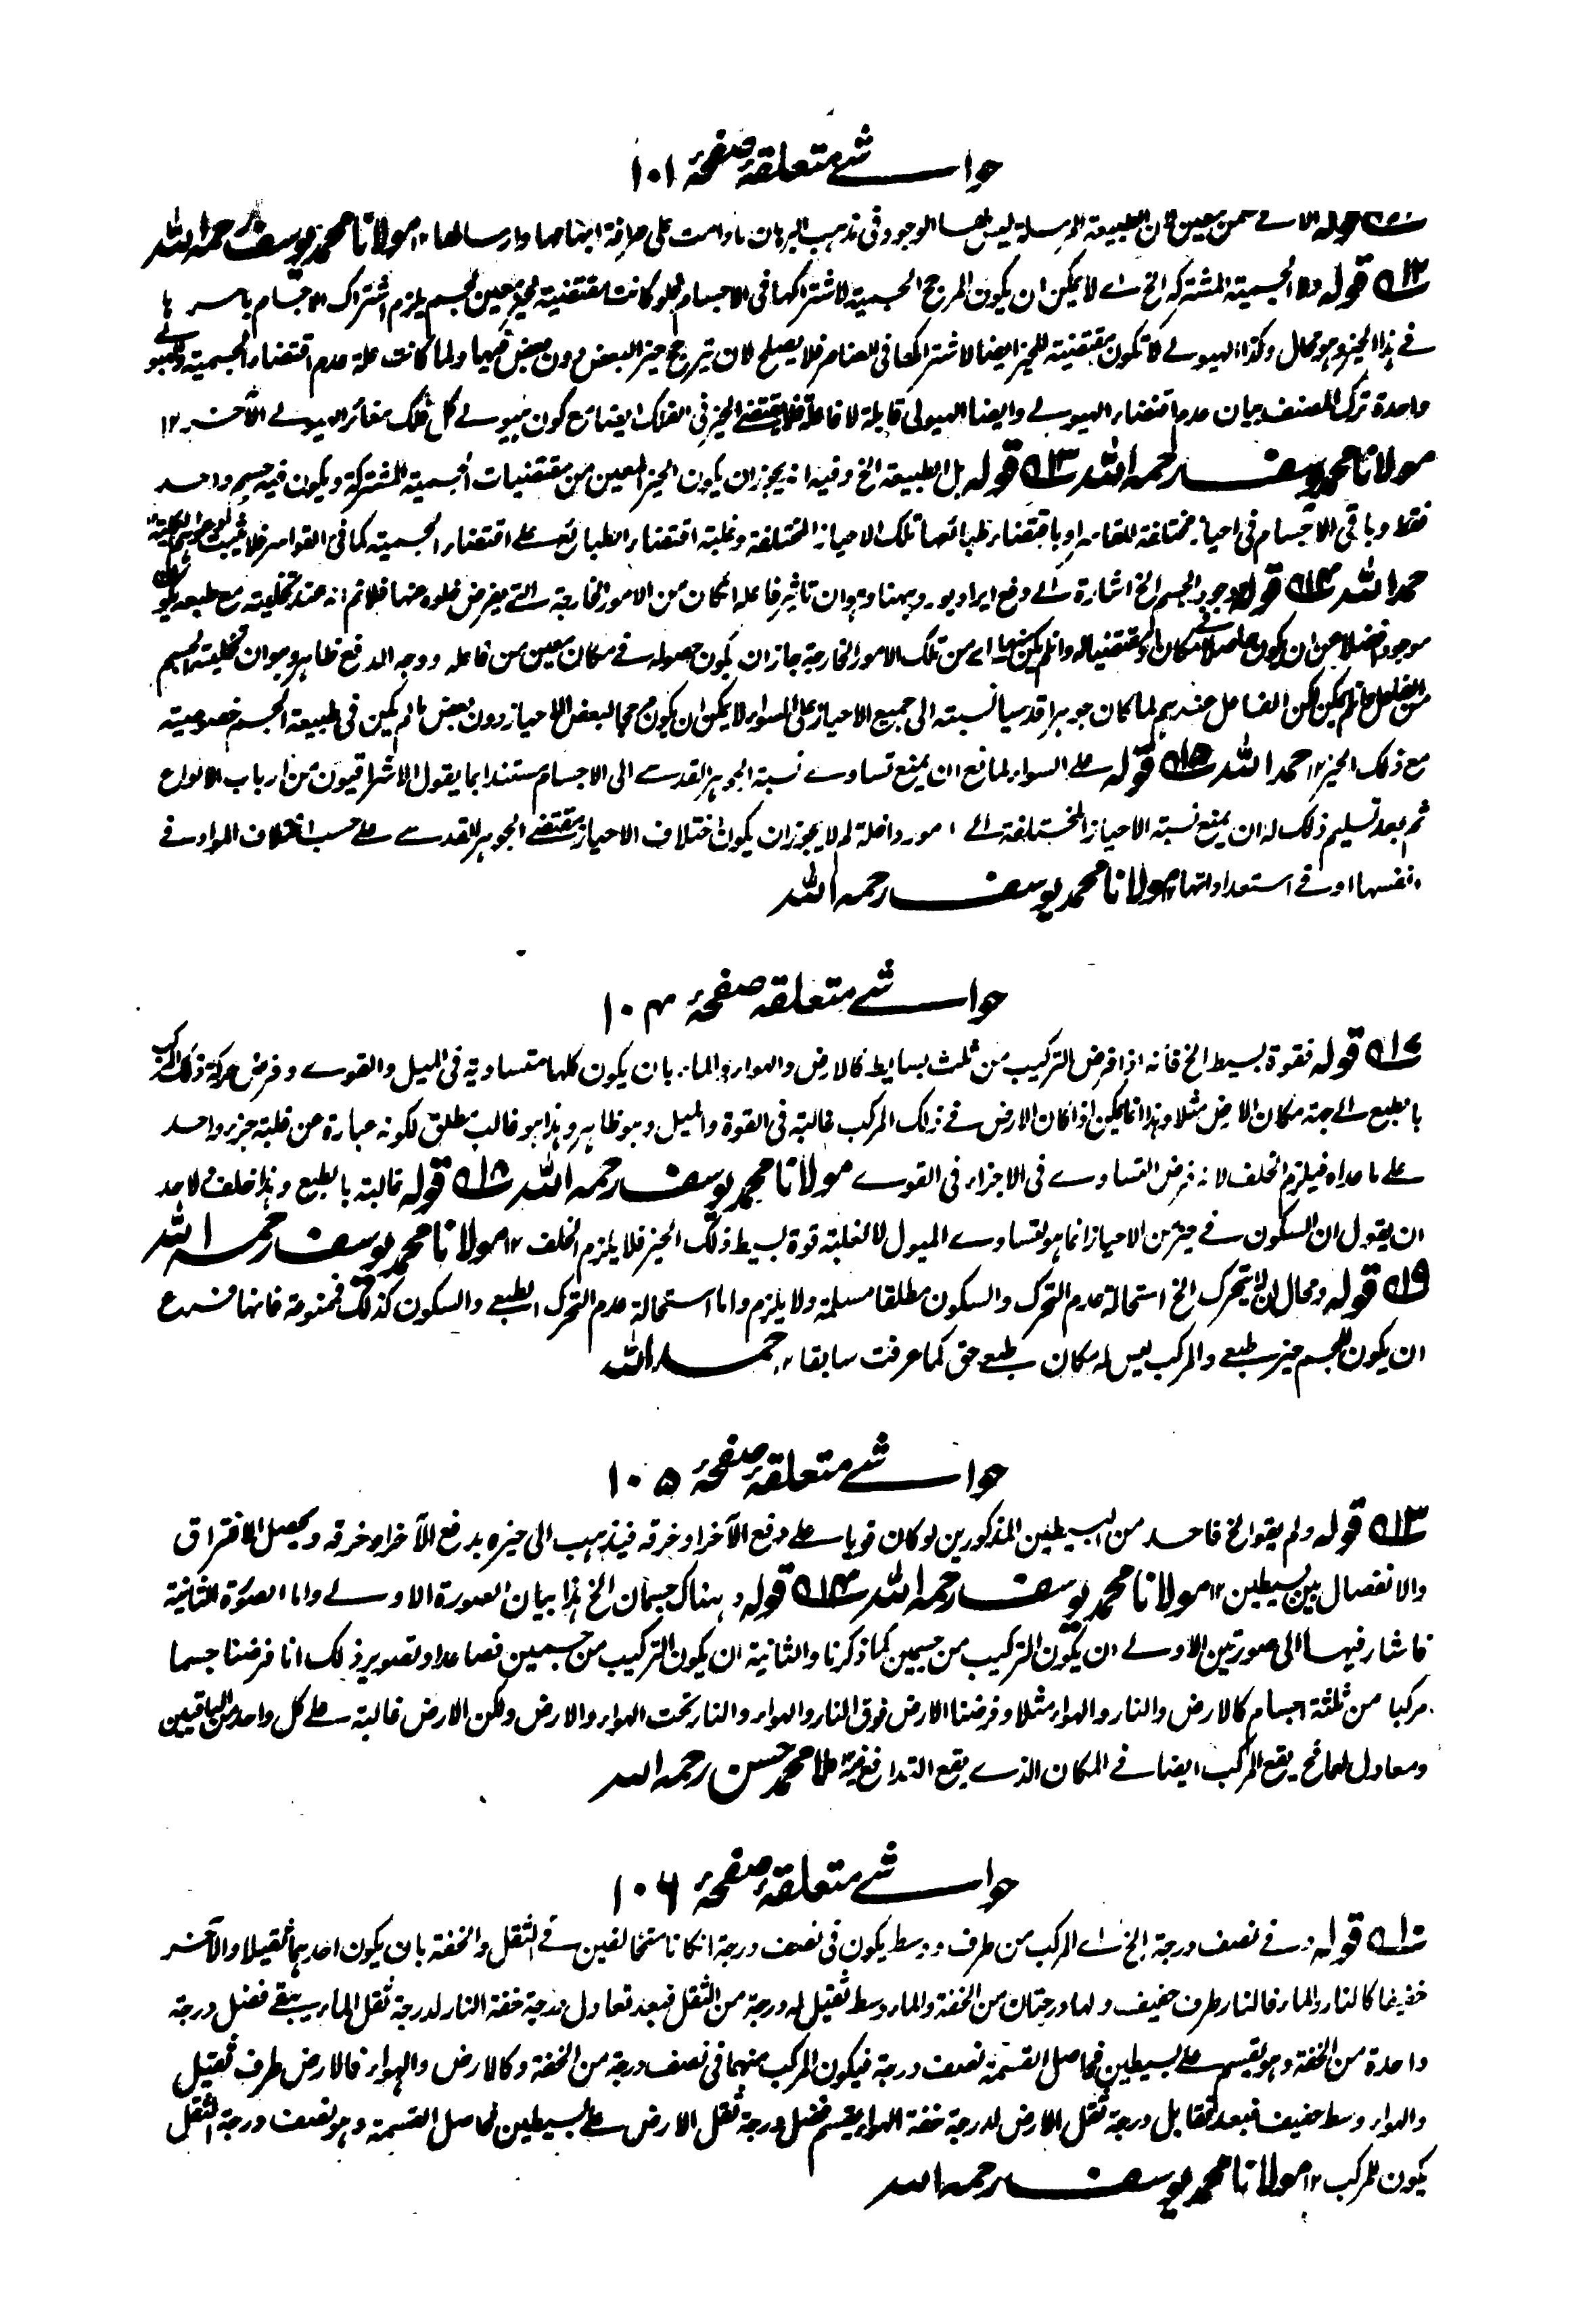 حواشے متعلقۂ صفحۂ ۱۰۱
قوله الا فے ضمن معين فان الطبيعة المرسلة ليس لها الوجود فى مذهب البرهان ما دامت على صرافة ابهامها وارسالها ۱۲ مولانا محمد يوسف رحمه الله
۱۲ قوله ولا الجسمية المشتركة الخ اے لا يمكن ان يكون المرجح الجسمية لاشتراكها فى الاجسام فلو كانت مقتضية لحيز معين لجسم يلزم اشتراك الاجسام باسرها
فے هذا الحيز وهو محال وكذا الهيولے لا تكون مقتضية للحيز ايضا لاشتراكها فى العناصر فلا يصلح لان ترجح حيز البعض دون بعض فيها ولما كانت علة عدم اقتضاء الجسمية والهيولے
واحدة ترك المصنف بيان عدم اقتضاء الهيولے وايضا الهيولى قابلة لا فاعلة فلا يقتضے الحيز فى الفلك ايضا مع كون هيولے كل فلك مغائر الهيولے الآخر ۱۲
مولانا محمد يوسف رحمه الله ۱۳ قوله بل الطبيعة الخ وفيه انه يجوز ان يكون الحيز المعين من مقتضيات الجسمية المشتركة ويكون فيه جسم واحد
فقط وباقى الاجسام فى احياز مختلفة للقاسر او باقتضاء طبائعها تلك الاحياز المختلفة وغلبة اقتضاء الطبائع علے اقتضاء الجسمية كما فى القواسر فلا يثبت
حمد الله ۱۴ قوله وجود الجسم الخ اشارة الے دفع ايراد يورد ههنا وهو ان تاثير فاعله ان كان من الامور الخارجة التے يفرض خلوه عنها فلا نم انه عند تخليته مع طبعه يكون
موجودا فضلا عن ان يكون حاصلا فى مكان او مقتضيا له وان لم يكن منها اے من تلك الامور الخارجة جاز ان يكون حصوله فے مكان معين من فاعله ووجه الدفع ظاهر وهو ان تخلية الجسم
عن الفاعل وان لم يمكن لكن الفاعل عندهم لما كان جوهرا قدسيا نسبته الى جميع الاحياز على السواء لا يمكن ان يكون مرجحا لبعض الاحياز دون بعض ما لم يكن فى طبيعة الجسم خصوصية
مع ذلك الحيز ۱۲ حمد الله ۱۵ قوله علے السواء لمانع ان يمنع تساوے نسبة الجوهر القدسے الى الاجسام مستندا بما يقول الاشراقيون من ارباب الانواع
ثم بعد تسليم ذلك له ان يمنع نسبة الاحياز المختلفة الے امور داخلة لم لا يجوز ان يكون اختلاف الاحياز مقتضے الجوهر القدسے علے حسب اختلاف المواد فے
انفسها او فے استعداداتها ۱۲ مولانا محمد يوسف رحمه الله
حواشے متعلقه صفحۂ ۱۰۴
۱۷ قوله فقوة بسيط الخ فانه اذا فرض التركيب من ثلث بسايط كالارض والهواء والماء بان يكون كلها متساوية فى الميل والقوے وفرض حركة ذلك المركب
بالطبع الے جهة مكان الارض مثلا وهذا انما يمكن اذا كان الارض فے ذلك المركب غالبة فى القوة والميل وهو ظاهر وهذا هو غالب مطلق لكونه عبارة عن غلبة جزء واحد
علے ما عداه فيلزم الخلف لانه فرض التساوے فى الاجزاء فى القوے مولانا محمد يوسف رحمه الله ۱۸ قوله غالبة بالطبع وهذا خلف لاحد
ان يقول ان السكون فے حيز من الاحياز انما هو لتساوے الميول لا لغلبة قوة بسيط ذلك الحيز فلا يلزم الخلف ۱۲ مولانا محمد يوسف رحمه الله
۱۹ قوله ومحال ان لا يتحرك الخ استحالة عدم التحرك والسكون مطلقا مسلمة ولا يلزم واما استحالة عدم التحرك الطبعے والسكون كذلك فممنوعة فانها فرع
ان يكون للجسم حيز طبعے والمركب ليس له مكان طبعے حق كما عرفت سابقا ۱۲ حمد الله
حواشے متعلقۂ صفحۂ ۱۰۵
۱۳ قوله ولم يقو الخ فاحد من البسيطين المذكورين لو كان قويا علے دفع الآخر او خرقه فيذهب الى حيزه بدفع الآخر او خرقه ويحصل الافتراق
والانفصال بين بسيطين ۱۲ مولانا محمد يوسف رحمه الله ۱۴ قوله وهناك جسمان الخ هذا بيان الصورة الاولے واما الصورة الثانية
فاشار فيها الى صورتين الاولے ان يكون التركيب من جسمين كما ذكرنا والثانية ان يكون التركيب من جسمين فصاعدا وتصوير ذلك انا فرضنا جسما
مركبا من ثلثة اجسام كالارض والنار والهواء مثلا وفرضنا الارض فوق النار والهواء والنار تحت الهواء والارض ولكن الارض غالبة علے كل واحد من الباقيين
ومعادل لهما فح يقع المركب ايضا فے المكان الذے يقع التدافع فيه ملا محمد حسن رحمه الله
حواشے متعلقۂ صفحۂ ۱۰۶
۱ قوله وفے نصف درجة الخ اے المركب من طرف ووسط يكون فى نصف درجة ان كانا متخالفين فے الثقل والخفة بان يكون احدهما ثقيلا والآخر
خفيفا كالنار والماء فالنار طرف خفيف ولها درجتان من الخفة والماء وسط ثقيل له درجة من الثقل فبعد تعادل درجة خفة النار لدرجة ثقل الماء يبقے فضل درجة
واحدة من الخفة وهو يقسم علے بسيطين فحاصل القسمة نصف درجة فيكون المركب منهما فى نصف درجة من الخفة وكالارض والهواء فالارض طرف ثقيل
والهواء وسط خفيف فبعد تقابل درجة ثقل الارض لدرجة خفة الهواء يقسم فضل درجة ثقل الارض علے بسيطين فحاصل القسمة وهو نصف درجة الثقل
يكون للمركب ۱۲ مولانا محمد يوسف رحمه الله